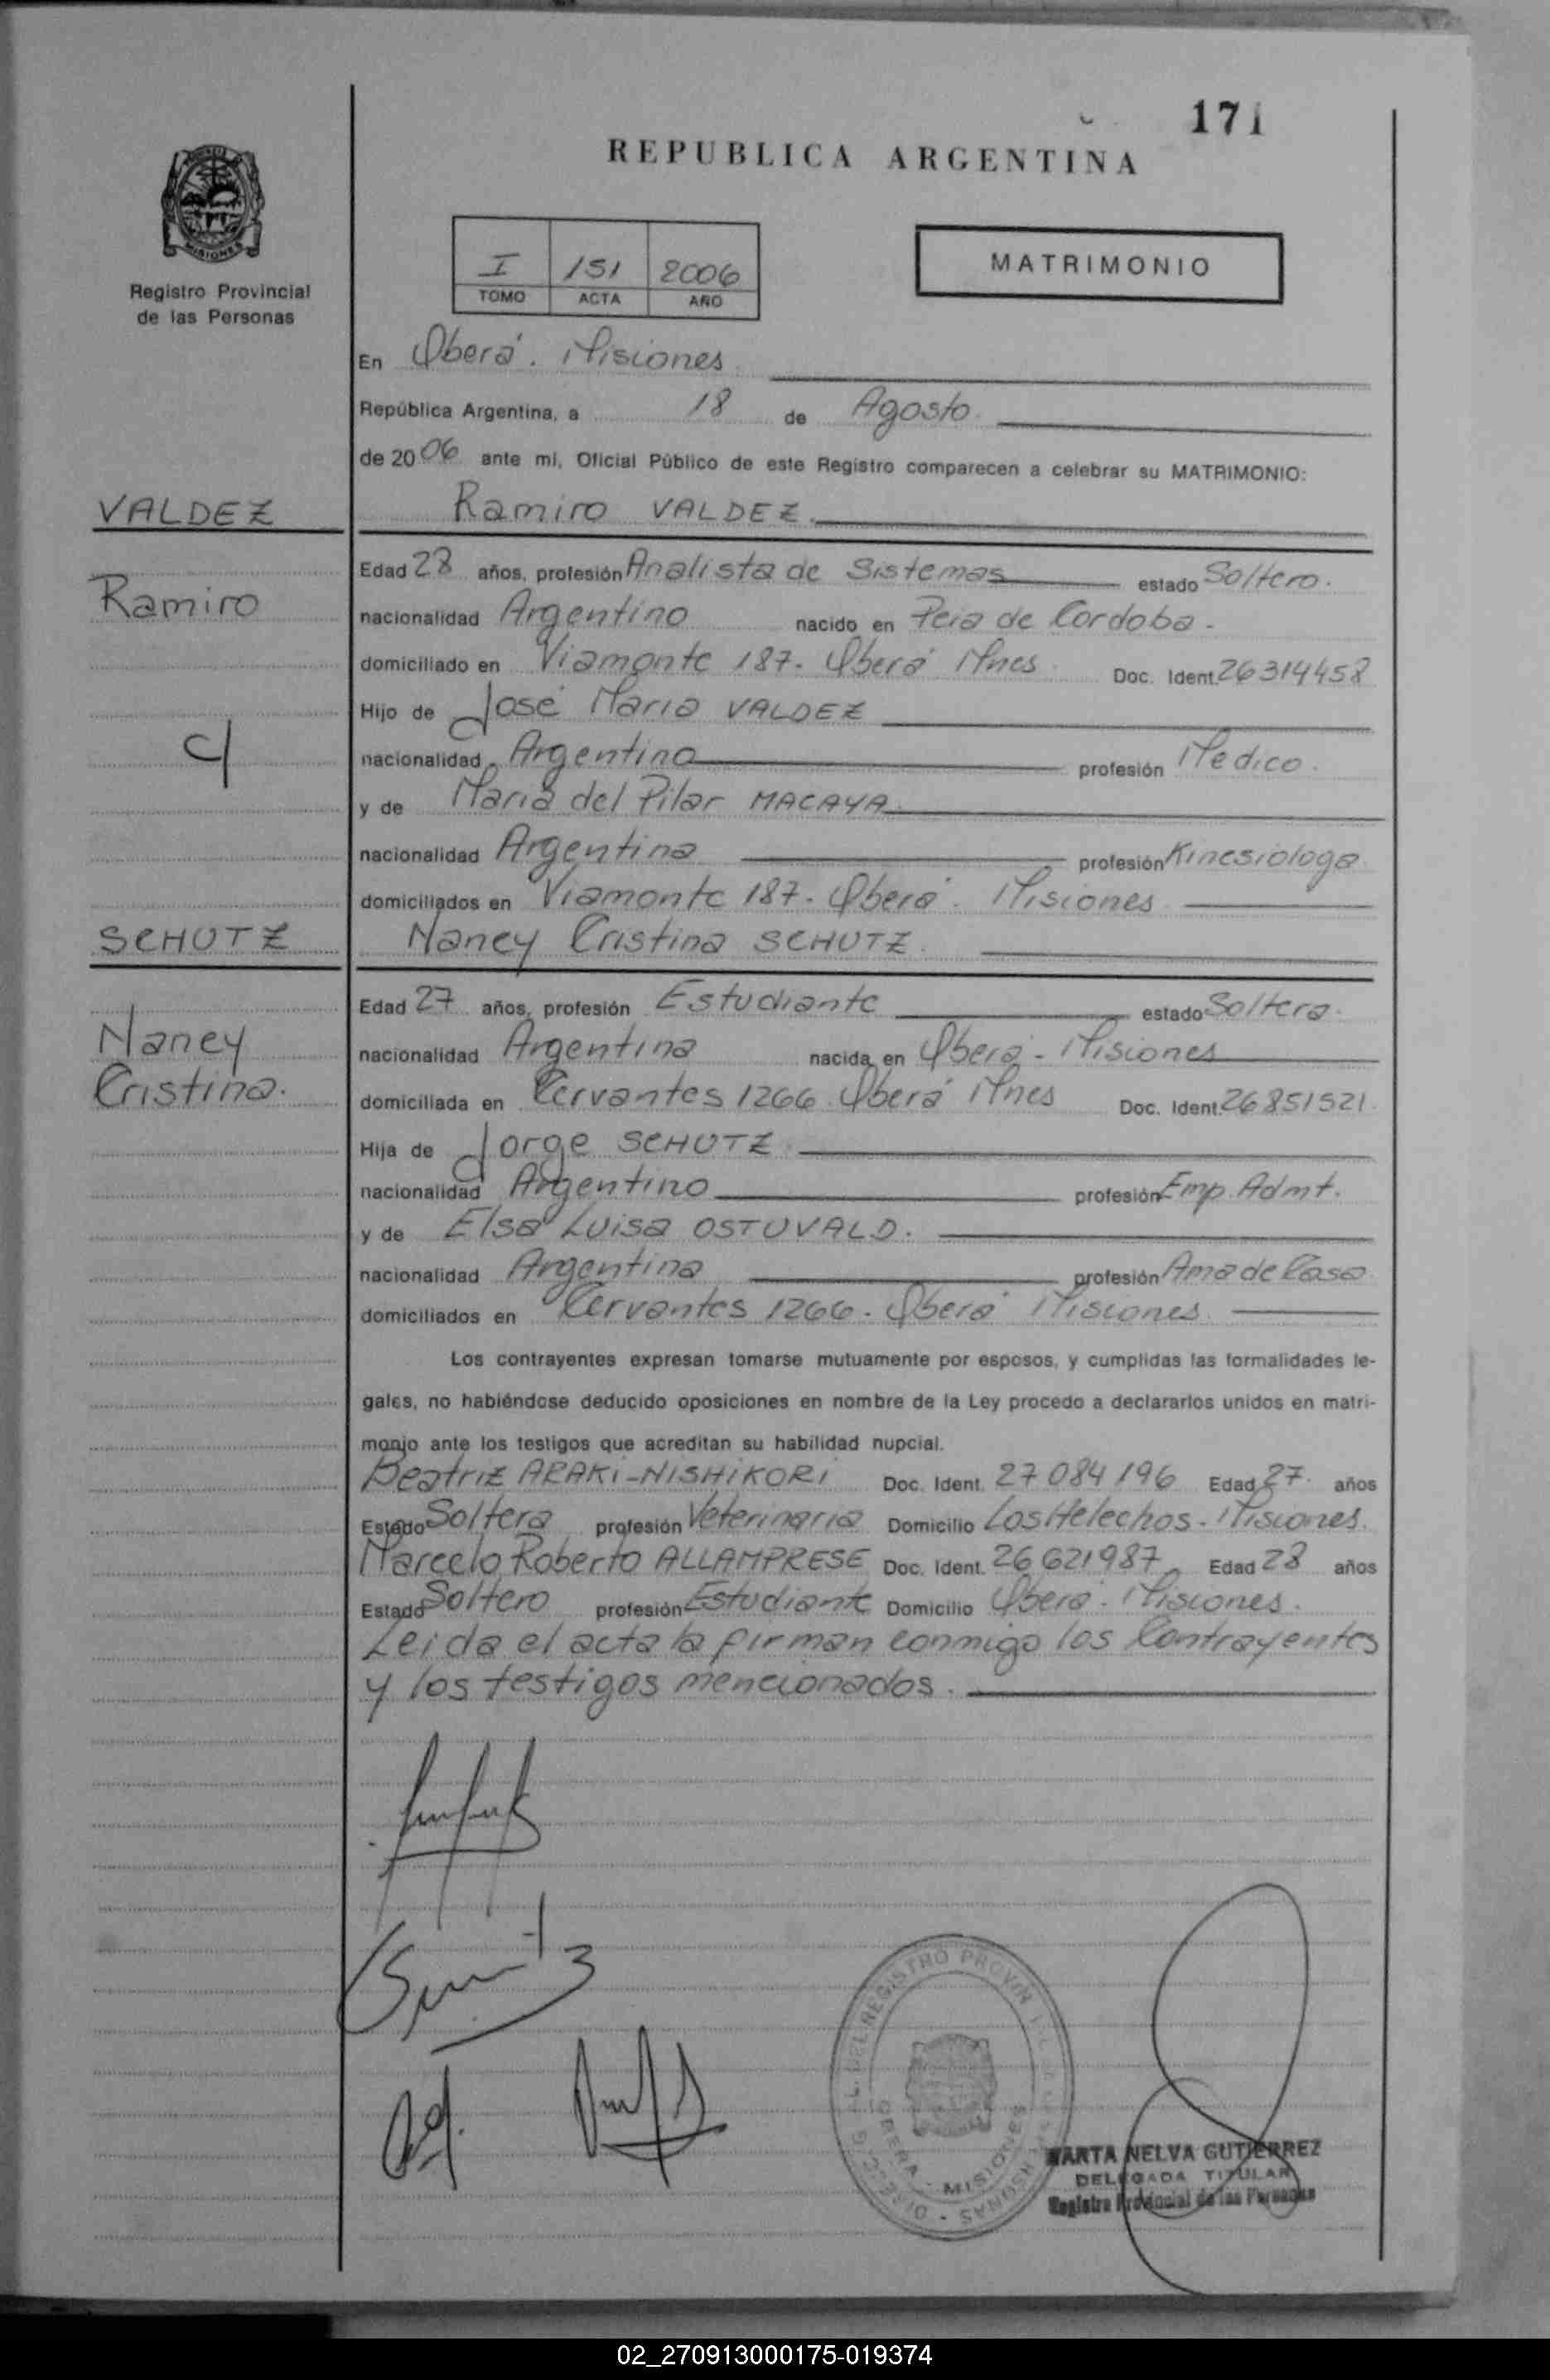 171
REPUBLICA ARGENTINA
MISIONES
Registro Provincial
de las Personas
I 151 2006
TOMO ACTA AÑO
MATRIMONIO
En Oberá. Misiones
República Argentina, a 18 de Agosto.
de 2006 ante mi, Oficial Público de este Registro comparecen a celebrar su MATRIMONIO:
VALDEZ
Ramiro VALDEZ.
Ramiro
Edad 28 años, profesión Analista de Sistemas estado Soltero.
nacionalidad Argentino nacido en Pcia de Cordoba.
domiciliado en Viamonte 187. Oberá Mnes. Doc. Ident. 26314458
Hijo de José Maria VALDEZ
c/
nacionalidad Argentina profesión Medico.
y de Maria del Pilar MACAYA.
nacionalidad Argentina profesión Kinesiologa
domiciliados en Viamonte 187. Oberá. Misiones
SCHUTZ
Nancy Cristina SCHUTZ.
Nancy
Cristina.
Edad 27 años, profesión Estudiante estado Soltera.
nacionalidad Argentina nacida en Oberá - Misiones
domiciliada en Cervantes 1266. Oberá Mnes Doc. Ident. 26851521.
Hija de Jorge SCHUTZ.
nacionalidad Argentino profesión Emp. Admt.
y de Elsa Luisa OSTUVALD.
nacionalidad Argentina profesión Ama de Casa
domiciliados en Cervantes 1266. Oberá Misiones.
Los contrayentes expresan tomarse mutuamente por esposos, y cumplidas las formalidades le-
gales, no habiéndose deducido oposiciones en nombre de la Ley procedo a declararlos unidos en matri-
monio ante los testigos que acreditan su habilidad nupcial.
Beatriz ARAKI-NISHIKORI Doc. Ident. 27084196 Edad 27. años
Estado Soltera profesión Veterinaria Domicilio Los Helechos - Misiones.
Marcelo Roberto ALLAMPRESE Doc. Ident. 26621987 Edad 28 años
Estado Soltero profesión Estudiante Domicilio Oberá. Misiones.
Leida el acta la firman conmigo los Contrayentes
y los testigos mencionados.
OBERA - MISIONES
MARTA NELVA GUTIERREZ
DELEGADA TITULAR
Registro Provincial de las Personas
02_270913000175-019374